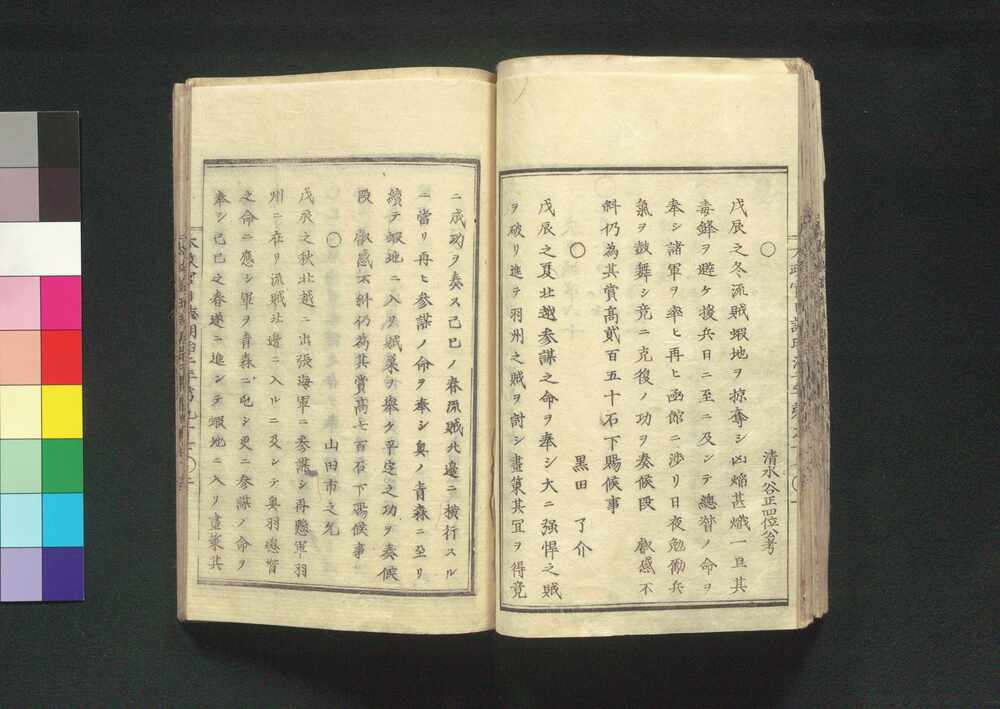 ○
清水谷正四位公考
戊辰之冬流賊蝦地ヲ掠奪シ凶焔甚熾一旦其
毒鋒ヲ避ケ援兵日ニ至ニ及ンテ總督ノ命ヲ
奉シ諸軍ヲ率ヒ再ヒ函館ニ渉リ日夜勉勵兵
氣ヲ鼓舞シ竟ニ克復ノ功ヲ奏候段 叡感不
斜仍為其賞高貳百五十石下賜候事
○
黒田 了介
戊辰之夏北越參謀之命ヲ奉シ大ニ強悍之賊
ヲ破リ進テ羽州之賊ヲ討シ畫策其冝ヲ得竟
ニ成功ヲ奏ス己巳ノ春流賊北邉ニ横行スル
ニ當リ再ヒ參謀ノ命ヲ奉シ奥ノ青森ニ至リ
續テ蝦地ニ入リ賊巣ヲ擧ケ平定之功ヲ奏候
段 叡感不斜仍為其賞高七百石下賜候事
○
山田市之允
戊辰之秋北越ニ出張海軍ニ參謀シ再懸軍羽
州ニ在リ流賊北邉ニ入ルニ及シテ奥羽總督
之命ニ應シ軍ヲ青森ニ屯シ更ニ參謀ノ命ヲ
奉シ己巳之春遂ニ進シテ蝦地ニ入リ畫策其